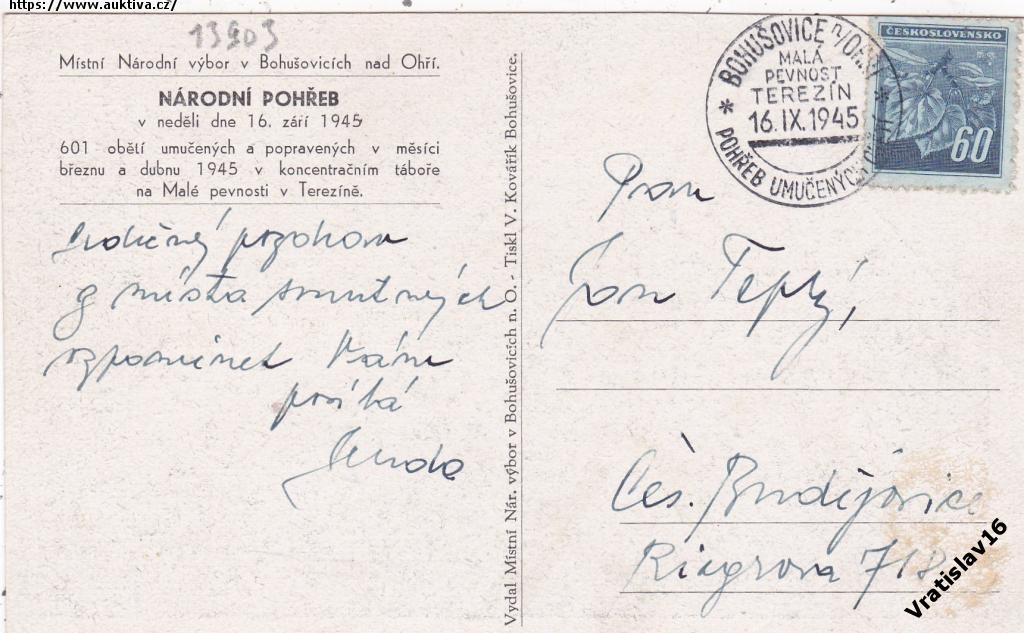 https://www.auktiva.cz/
13903
Místní Národní výbor v Bohušovicích nad Ohří.
NÁRODNÍ POHŘEB
v neděli dne 16. září 1945
601 obětí umučených a popravených v měsíci
březnu a dubnu 1945 v koncentračním táboře
na Malé pevnosti v Terezíně.
Srdečný pozdrav
z místa smutných
vzpomínek Vám
posílá
Jenda
Vydal Místní Nár. výbor v Bohušovicích n. O. - Tiskl V. Kovářík Bohušovice.
BOHUŠOVICE n/OHŘÍ
MALÁ
PEVNOST
TEREZÍN
16.IX.1945
POHŘEB UMUČENÝCH
ČESKOSLOVENSKO
60
Pan
Jan Teplý,
Čes. Budějovice
Riegrova 718
Vratislav16